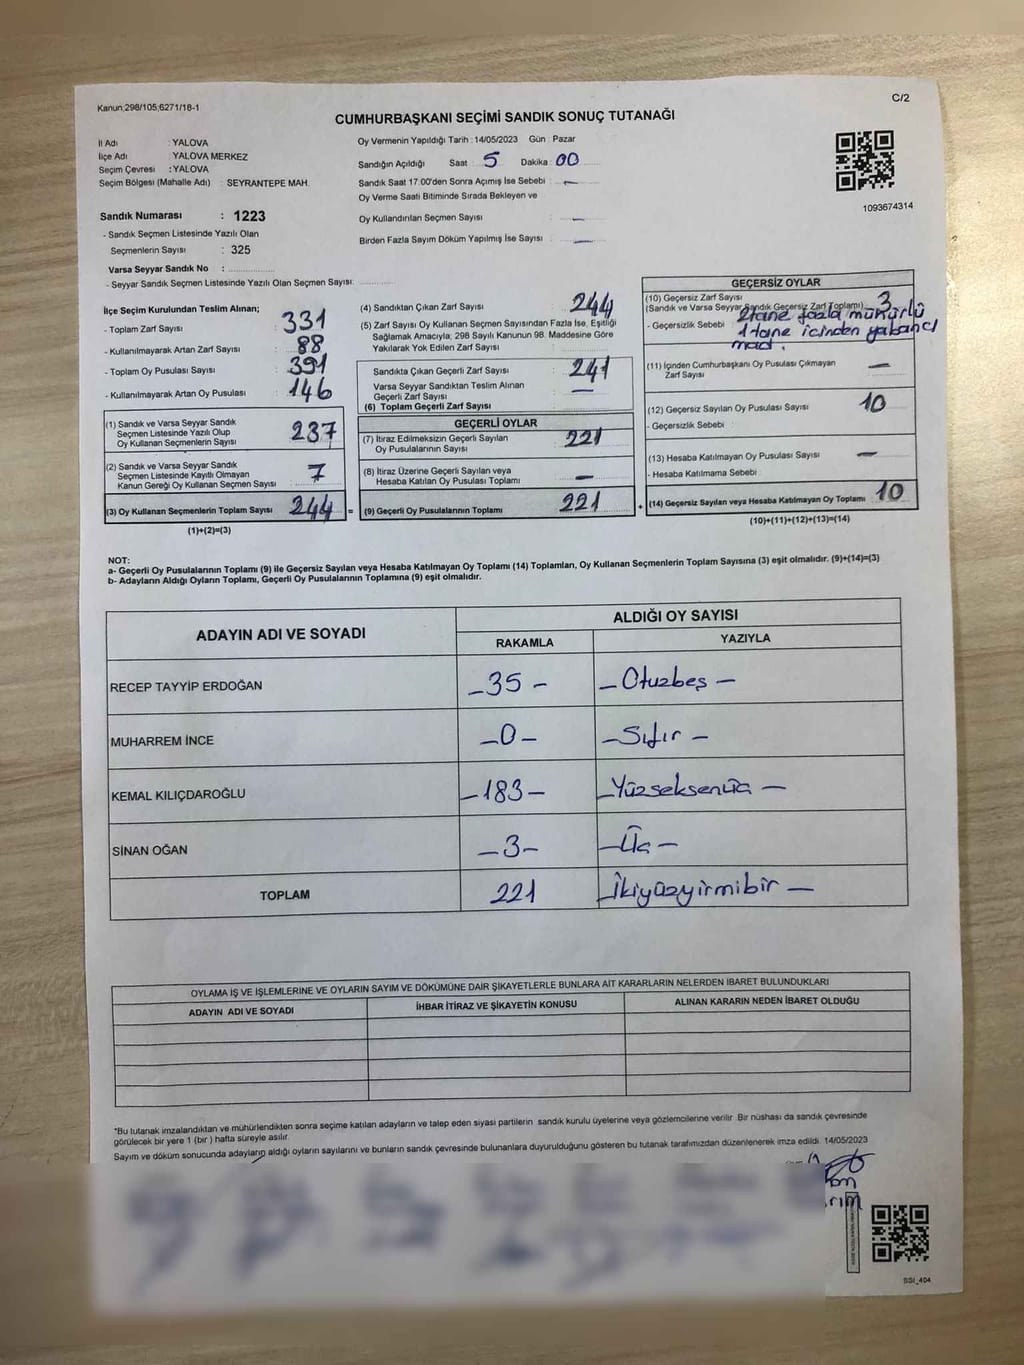 Kanun;298/105;6271/18-1
C/2
CUMHURBAŞKANI SEÇİMİ SANDIK SONUÇ TUTANAĞI
İl Adı : YALOVA
İlçe Adı : YALOVA MERKEZ
Seçim Çevresi : YALOVA
Seçim Bölgesi (Mahalle Adı) : SEYRANTEPE MAH.
Sandık Numarası : 1223
- Sandık Seçmen Listesinde Yazılı Olan
Seçmenlerin Sayısı : 325
Varsa Seyyar Sandık No :
- Seyyar Sandık Seçmen Listesinde Yazılı Olan Seçmen Sayısı:
Oy Vermenin Yapıldığı Tarih : 14/05/2023 Gün : Pazar
Sandığın Açıldığı Saat : 5 Dakika : 00
Sandık Saat 17.00'den Sonra Açımış İse Sebebi : —
Oy Verme Saati Bitiminde Sırada Bekleyen ve
Oy Kullandırılan Seçmen Sayısı : —
Birden Fazla Sayım Döküm Yapılmış İse Sayısı : —
1093674314
İlçe Seçim Kurulundan Teslim Alınan;
- Toplam Zarf Sayısı : 331
- Kullanılmayarak Artan Zarf Sayısı : 88
- Toplam Oy Pusulası Sayısı : 391
- Kullanılmayarak Artan Oy Pusulası : 146
(1) Sandık ve Varsa Seyyar Sandık
Seçmen Listesinde Yazılı Olup
Oy Kullanan Seçmenlerin Sayısı 237
(2) Sandık ve Varsa Seyyar Sandık
Seçmen Listesinde Kayıtlı Olmayan
Kanun Gereği Oy Kullanan Seçmen Sayısı 7
(3) Oy Kullanan Seçmenlerin Toplam Sayısı 244 =
(1)+(2)=(3)
(4) Sandıktan Çıkan Zarf Sayısı : 244
(5) Zarf Sayısı Oy Kullanan Seçmen Sayısından Fazla İse, Eşitliği
Sağlamak Amacıyla, 298 Sayılı Kanunun 98. Maddesine Göre
Yakılarak Yok Edilen Zarf Sayısı :
Sandıkta Çıkan Geçerli Zarf Sayısı : 241
Varsa Seyyar Sandıktan Teslim Alınan
Geçerli Zarf Sayısı : —
(6) Toplam Geçerli Zarf Sayısı
GEÇERLİ OYLAR
(7) İtiraz Edilmeksizin Geçerli Sayılan
Oy Pusulalarının Sayısı : 221
(8) İtiraz Üzerine Geçerli Sayılan veya
Hesaba Katılan Oy Pusulası Toplamı : —
(9) Geçerli Oy Pusulalarının Toplamı : 221 +
GEÇERSİZ OYLAR
(10) Geçersiz Zarf Sayısı
(Sandık ve Varsa Seyyar Sandık Geçersiz Zarf Toplamı) : 3
- Geçersizlik Sebebi : 2 tane fazla mühürlü
1 tane içinden yabancı
mad.
(11) İçinden Cumhurbaşkanı Oy Pusulası Çıkmayan
Zarf Sayısı : —
(12) Geçersiz Sayılan Oy Pusulası Sayısı : 10
- Geçersizlik Sebebi :
(13) Hesaba Katılmayan Oy Pusulası Sayısı : —
- Hesaba Katılmama Sebebi :
(14) Geçersiz Sayılan veya Hesaba Katılmayan Oy Toplamı : 10
(10)+(11)+(12)+(13)=(14)
NOT:
a- Geçerli Oy Pusulalarının Toplamı (9) ile Geçersiz Sayılan veya Hesaba Katılmayan Oy Toplamı (14) Toplamları, Oy Kullanan Seçmenlerin Toplam Sayısına (3) eşit olmalıdır. (9)+(14)=(3)
b- Adayların Aldığı Oyların Toplamı, Geçerli Oy Pusulalarının Toplamına (9) eşit olmalıdır.
ADAYIN ADI VE SOYADI
ALDIĞI OY SAYISI
RAKAMLA YAZIYLA
RECEP TAYYİP ERDOĞAN – 35 – – Otuzbeş –
MUHARREM İNCE – 0 – – Sıfır –
KEMAL KILIÇDAROĞLU – 183 – – Yüzseksenüç –
SİNAN OĞAN – 3 – – Üç –
TOPLAM 221 – İkiyüzyirmibir –
OYLAMA İŞ VE İŞLEMLERİNE VE OYLARIN SAYIM VE DÖKÜMÜNE DAİR ŞİKAYETLERLE BUNLARA AİT KARARLARIN NELERDEN İBARET BULUNDUKLARI
ADAYIN ADI VE SOYADI İHBAR İTİRAZ VE ŞİKAYETİN KONUSU ALINAN KARARIN NEDEN İBARET OLDUĞU
*Bu tutanak imzalandıktan ve mühürlendikten sonra seçime katılan adayların ve talep eden siyasi partilerin sandık kurulu üyelerine veya gözlemcilerine verilir. Bir nüshası da sandık çevresinde
görülecek bir yere 1 (bir) hafta süreyle asılır.
Sayım ve döküm sonucunda adayların aldığı oyların sayılarını ve bunların sandık çevresinde bulunanlara duyurulduğunu gösteren bu tutanak tarafımızdan düzenlenerek imza edildi. 14/05/2023
SSI_404